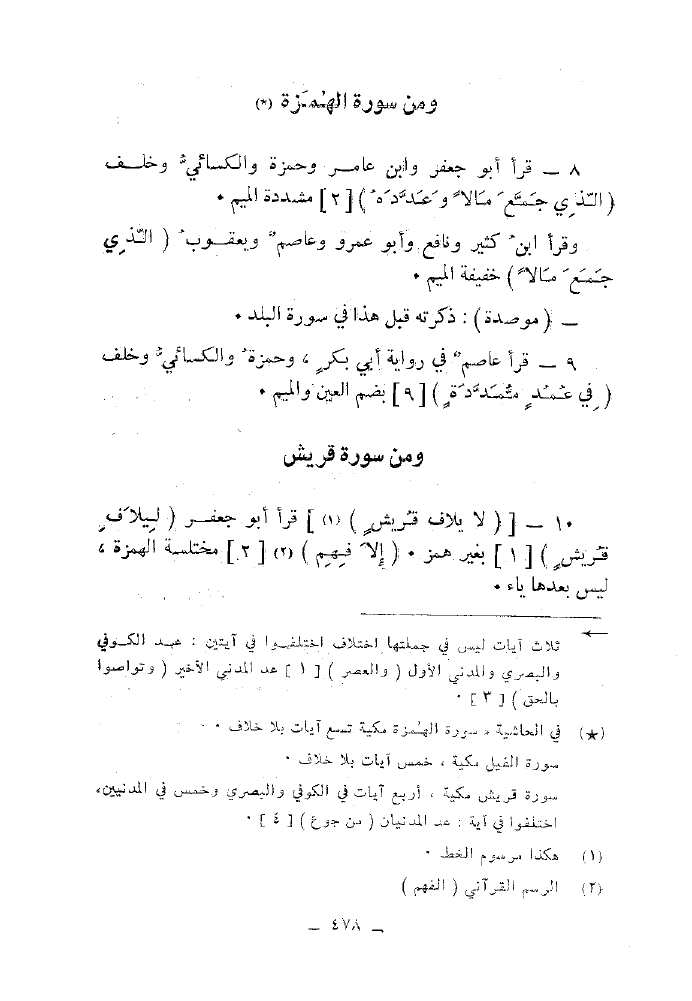 ومن سورة الهُمَزة (*)
٨ — قرأ أبو جعفر وابن عامر وحمزة والكسائيُّ وخلف
( الَّذِي جَمَّعَ مَالاً وَعَدَّدَهُ ) [ ٢ ] مشددة الميم •
وقرأ ابنُ كثير ونافع وأبو عمرو وعاصمٌ ويعقوبُ ( الَّذِي
جَمَعَ مَالاً ) خفيفة الميم •
— ( موصدة ) : ذكرته قبل هذا في سورة البلد •
٩ — قرأ عاصمٌ في رواية أبي بكرٍ ، وحمزةُ والكسائيُّ وخلف
( فِي عُمُدٍ مُّمَدَّدَةٍ ) [ ٩ ] بضم العين والميم •
ومن سورة قريش
١٠ — [ ( لا يلاف قُرَيشٍ ) (١) ] قرأ أبو جعفر ( لِيلاَفِ
قُرَيشٍ ) [ ١ ] بغير همز • ( إِلاَفِهِم ) (٢) [ ٢ ] مختلسة الهمزة ،
ليس بعدها ياء •
← ثلاث آيات ليس في جملتها اختلاف اختلفوا في آيتين : عبد الكوفي
والبصري والمدني الأول ( والعصر ) [ ١ ] عد المدني الأخير ( وتواصوا
بالحق ) [ ٣ ] •
(★) في الحاشية « سورة الهُمزة مكية تسع آيات بلا خلاف •
سورة الفيل مكية ، خمس آيات بلا خلاف •
سورة قريش مكية ، أربع آيات في الكوفي والبصري وخمس في المدنيين،
اختلفوا في آية : عد المدنيان ( من جوع ) [ ٤ ] •
(١) هكذا مرسوم الخط •
(٢) الرسم القرآني ( الفهم )
— ٤٧٨ —